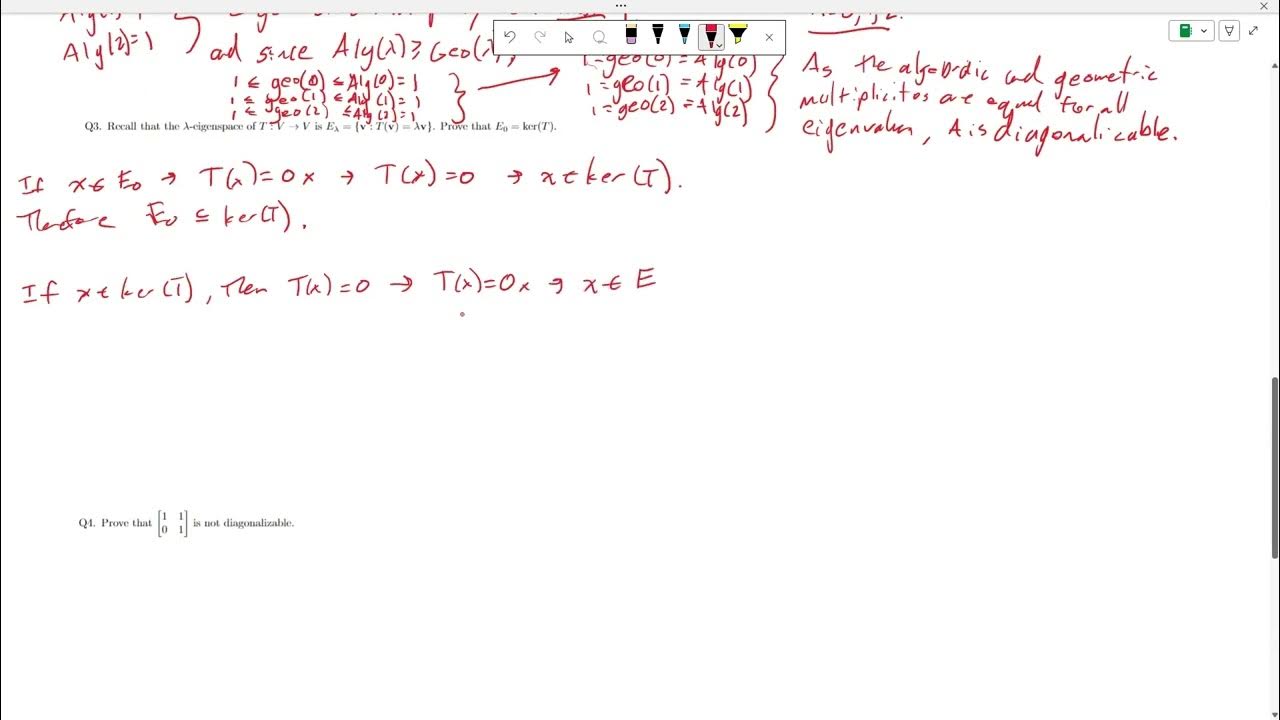 Aly(2)=1
and since Aly(λ) ≥ Geo(λ),
1 ≤ geo(0) ≤ Aly(0) = 1
1 ≤ geo(1) ≤ Aly(1) = 1
1 ≤ geo(2) ≤ Aly(2) = 1
1 = geo(0) = Aly(0)
1 = geo(1) = Aly(1)
1 = geo(2) = Aly(2)
As the algebraic and geometric
multiplicites are equal for all
eigenvalues, A is diagonalizable.
Q3. Recall that the λ-eigenspace of T : V → V is E_λ = {v : T(v) = λv}. Prove that E_0 = ker(T).
If x ∈ E_0 → T(x) = 0x → T(x) = 0 → x ∈ ker(T).
Therefore E_0 ⊆ ker(T).
If x ∈ ker(T), Then T(x) = 0 → T(x) = 0x → x ∈ E
Q4. Prove that [1 1; 0 1] is not diagonalizable.